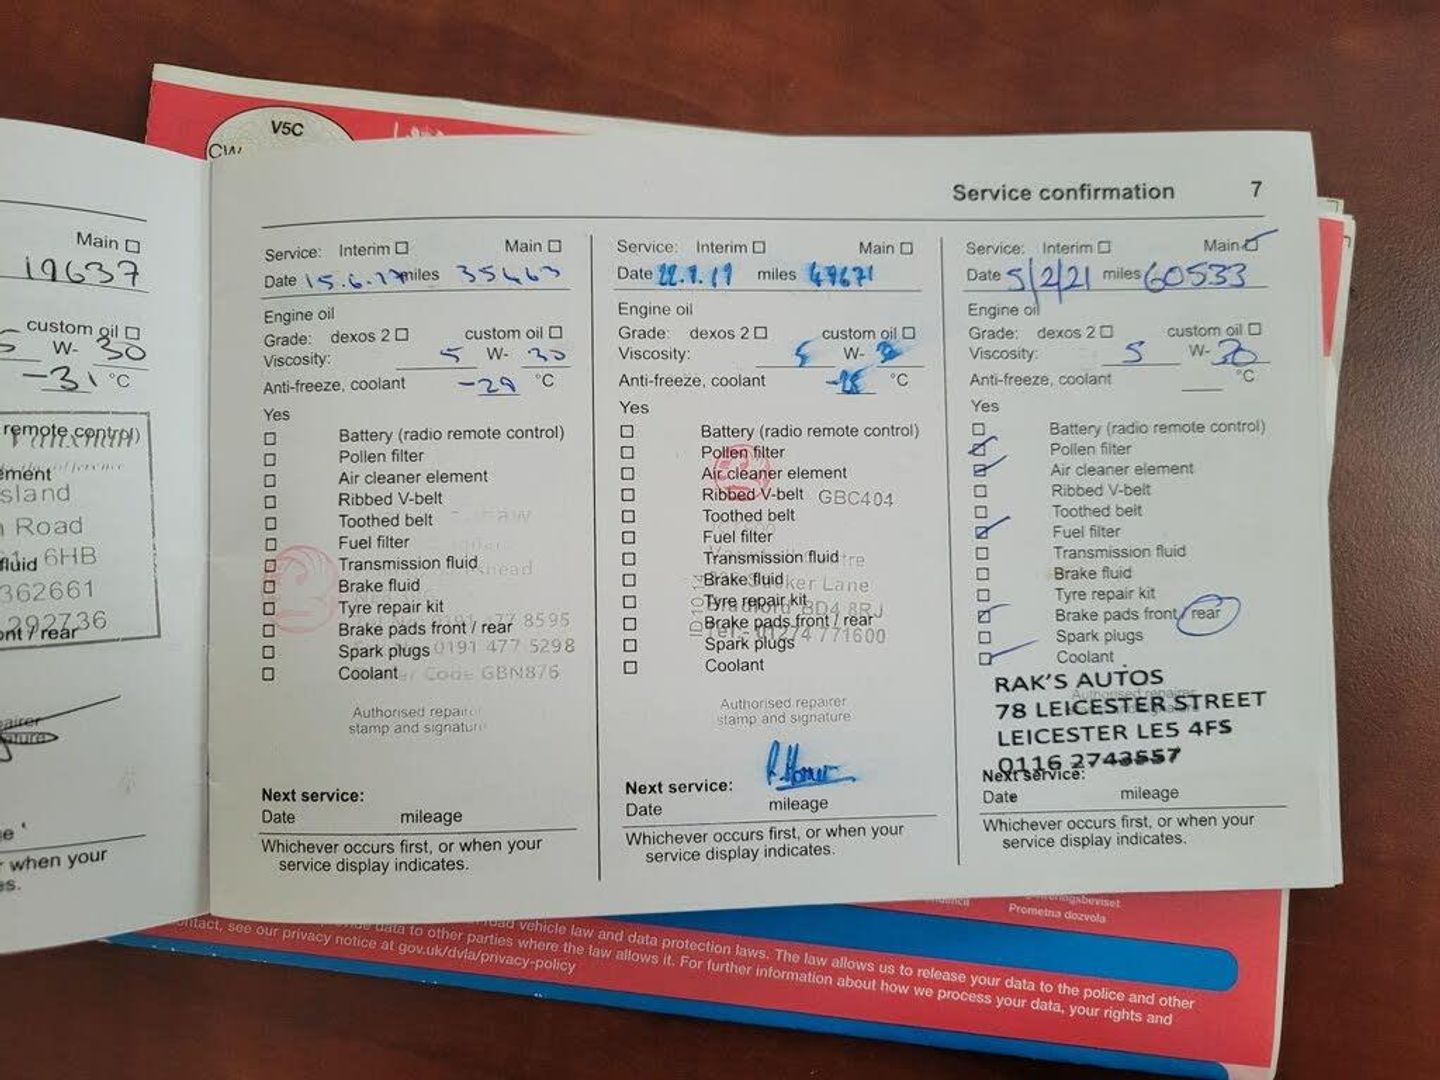 V5C
Main
19637
custom oil
W- 30
-31 °C
remote control)
ement
sland
Road
6HB
fluid
362661
292736
ont / rear
when your
es.
Service confirmation 7
Service: Interim Main
Date 15.6.17 miles 35463
Engine oil
Grade: dexos 2 custom oil
Viscosity: 5 W- 30
Anti-freeze, coolant -29 °C
Yes
Battery (radio remote control)
Pollen filter
Air cleaner element
Ribbed V-belt
Toothed belt
Fuel filter
Transmission fluid
Brake fluid
Tyre repair kit
Brake pads front / rear
8595
Spark plugs
0191 477 5298
Coolant
Code GBN876
Authorised repairer
stamp and signature
Next service:
Date mileage
Whichever occurs first, or when your
service display indicates.
Service: Interim Main
Date miles 49671
Engine oil
Grade: dexos 2 custom oil
Viscosity: 5 W- 30
Anti-freeze, coolant °C
Yes
Battery (radio remote control)
Pollen filter
Air cleaner element
Ribbed V-belt
GBC404
Toothed belt
Fuel filter
Transmission fluid
Brake fluid
Lane
Tyre repair kit
BD4 8RJ
Brake pads front / rear
Tel - 01274 771600
Spark plugs
Coolant
Authorised repairer
stamp and signature
Next service:
Date mileage
Whichever occurs first, or when your
service display indicates.
Service: Interim Main
Date 5/2/21 miles 60533
Engine oil
Grade: dexos 2 custom oil
Viscosity: 5 W- 30
Anti-freeze, coolant °C
Yes
Battery (radio remote control)
Pollen filter
Air cleaner element
Ribbed V-belt
Toothed belt
Fuel filter
Transmission fluid
Brake fluid
Tyre repair kit
Brake pads front / rear
Spark plugs
Coolant
RAK'S AUTOS
Authorised repairer
78 LEICESTER STREET
LEICESTER LE5 4FS
0116 2743557
Next service:
Date mileage
Whichever occurs first, or when your
service display indicates.
Prometna dozvola
data to other parties where the law allows it. For further information about how we process your data, your rights and
vehicle law and data protection laws. The law allows us to release your data to the police and other
see our privacy notice at gov.uk/dvla/privacy-policy